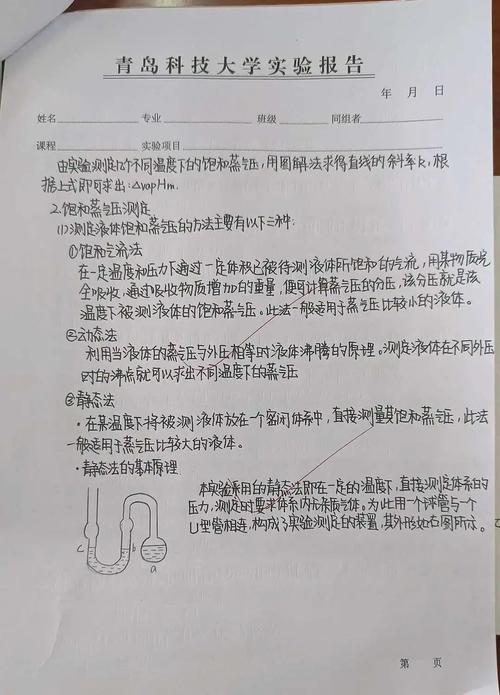 青岛科技大学实验报告
年 月 日
姓名 专业 班级 同组者
课程 实验项目
由实验测定几个不同温度下的饱和蒸气压,用图解法求得直线的斜率k,根
据上式即可求出:ΔvapHm.
2.饱和蒸气压测定
(1)测定液体饱和蒸气压的方法主要有以下三种:
①饱和气流法
在一定温度和压力下通过一定体积已被待测液体所饱和的气流,用某物质完
全吸收,通过吸收物质增加的重量,便可计算蒸气的分压,该分压就是该
温度下被测液体的饱和蒸气压。此法一般适用于蒸气压比较小的液体。
②动态法
利用当液体的蒸气压与外压相等时液体沸腾的原理。测定液体在不同外压
时的沸点就可以求出不同温度下的蒸气压
③静态法
·在某温度下将被测液体放在一个密闭体系中,直接测量其饱和蒸气压,此法
一般适用于蒸气压比较大的液体。
·静态法的基本原理
本实验采用的静态法即在一定的温度下,直接测定体系的
压力,测定时要求体系内无杂质气体。为此用一个球管与一个
U型管相连,构成了实验测定的装置,其外形如右图所示。
c b
a
第 页